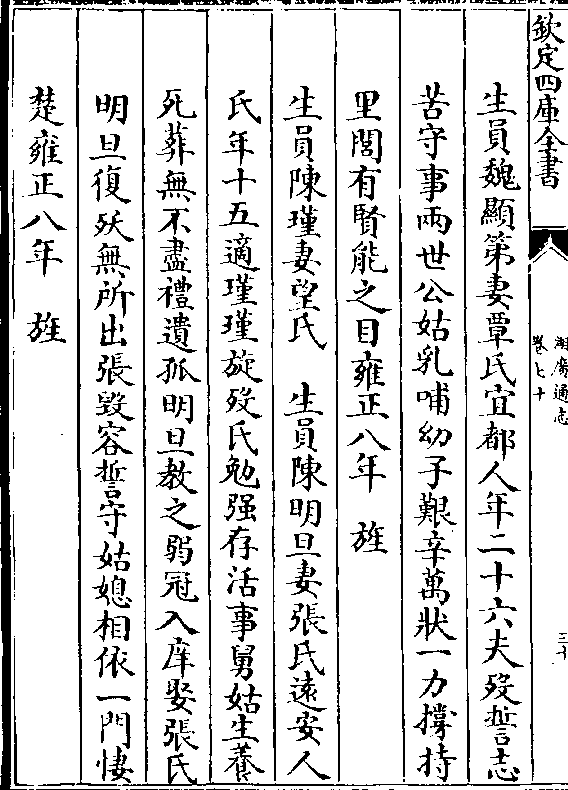 欽定四庫全書
湖廣通志
卷七十
三十
生員魏顯第妻覃氏宜都人年二十六夫歿誓志
苦守事兩世公姑乳哺幼子艱辛萬狀一力撐持
里閭有賢能之目雍正八年　旌
生員陳瑾妻望氏　生員陳明旦妻張氏遠安人
氏年十五適瑾瑾旋歿氏勉强存活事舅姑生養
死葬無不盡禮遺孤明旦教之弱冠入庠娶張氏
明旦復殀無所出張毀容誓守姑媳相依一門悽
楚雍正八年　旌